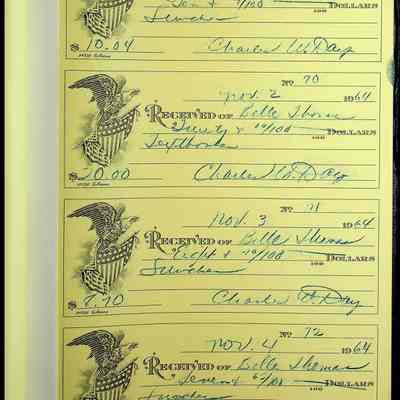 Ten & 4/100 100 DOLLARS
Lunches
$ 10.04 Charles W. Day
No 70
Nov. 2 1964
RECEIVED OF Belle Thomas
Twenty & no/100 100 DOLLARS
Textbooks
$ 20.00 Charles W. Day
No 71
Nov. 3 1964
RECEIVED OF Belle Thomas
Eight & 70/100 100 DOLLARS
Lunches
$ 8.70 Charles W. Day
No 72
Nov. 4 1964
RECEIVED OF Belle Thomas
Seven & /100 100 DOLLARS
Lunches